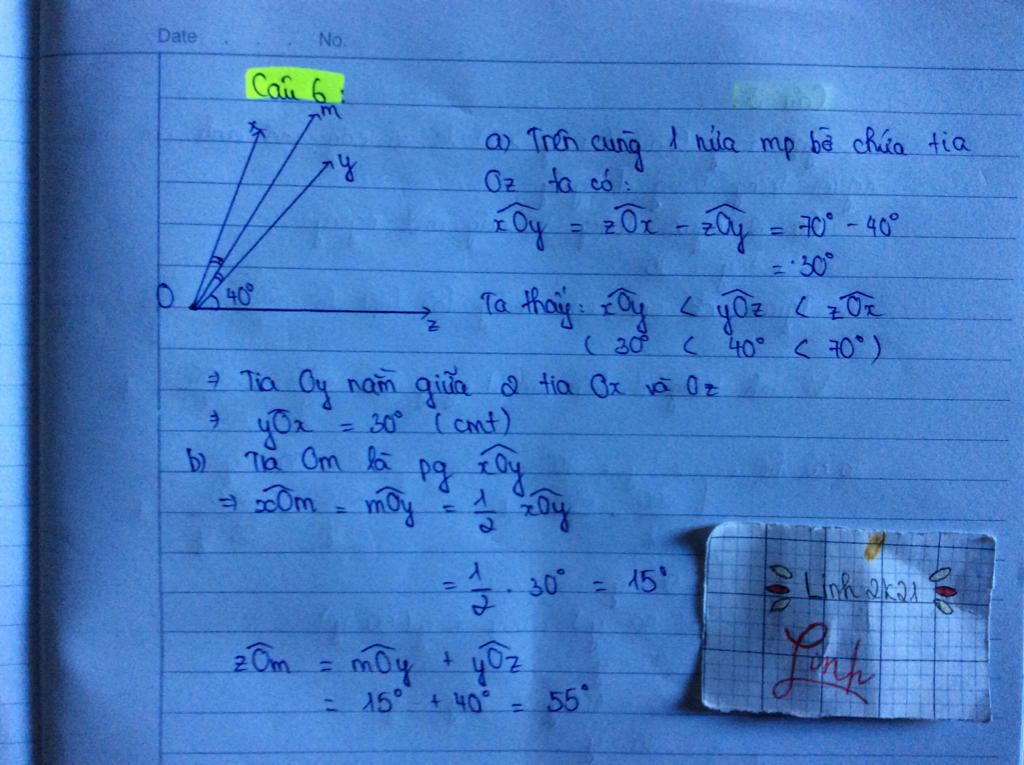 Date . . . No.
Câu 6:
x
m
y
O
40°
z
a) Trên cùng 1 nửa mp bờ chứa tia
Oz ta có:
xOy = zOx - zOy = 70° - 40°
= 30°
Ta thấy: xOy < yOz < zOx
( 30° < 40° < 70° )
⇒ Tia Oy nằm giữa 2 tia Ox và Oz
⇒ yOx = 30° (cmt)
b) Tia Om là pg xOy
⇒ xOm = mOy = 1/2 xOy
= 1/2 . 30° = 15°
zOm = mOy + yOz
= 15° + 40° = 55°
Linh 2k21
Linh